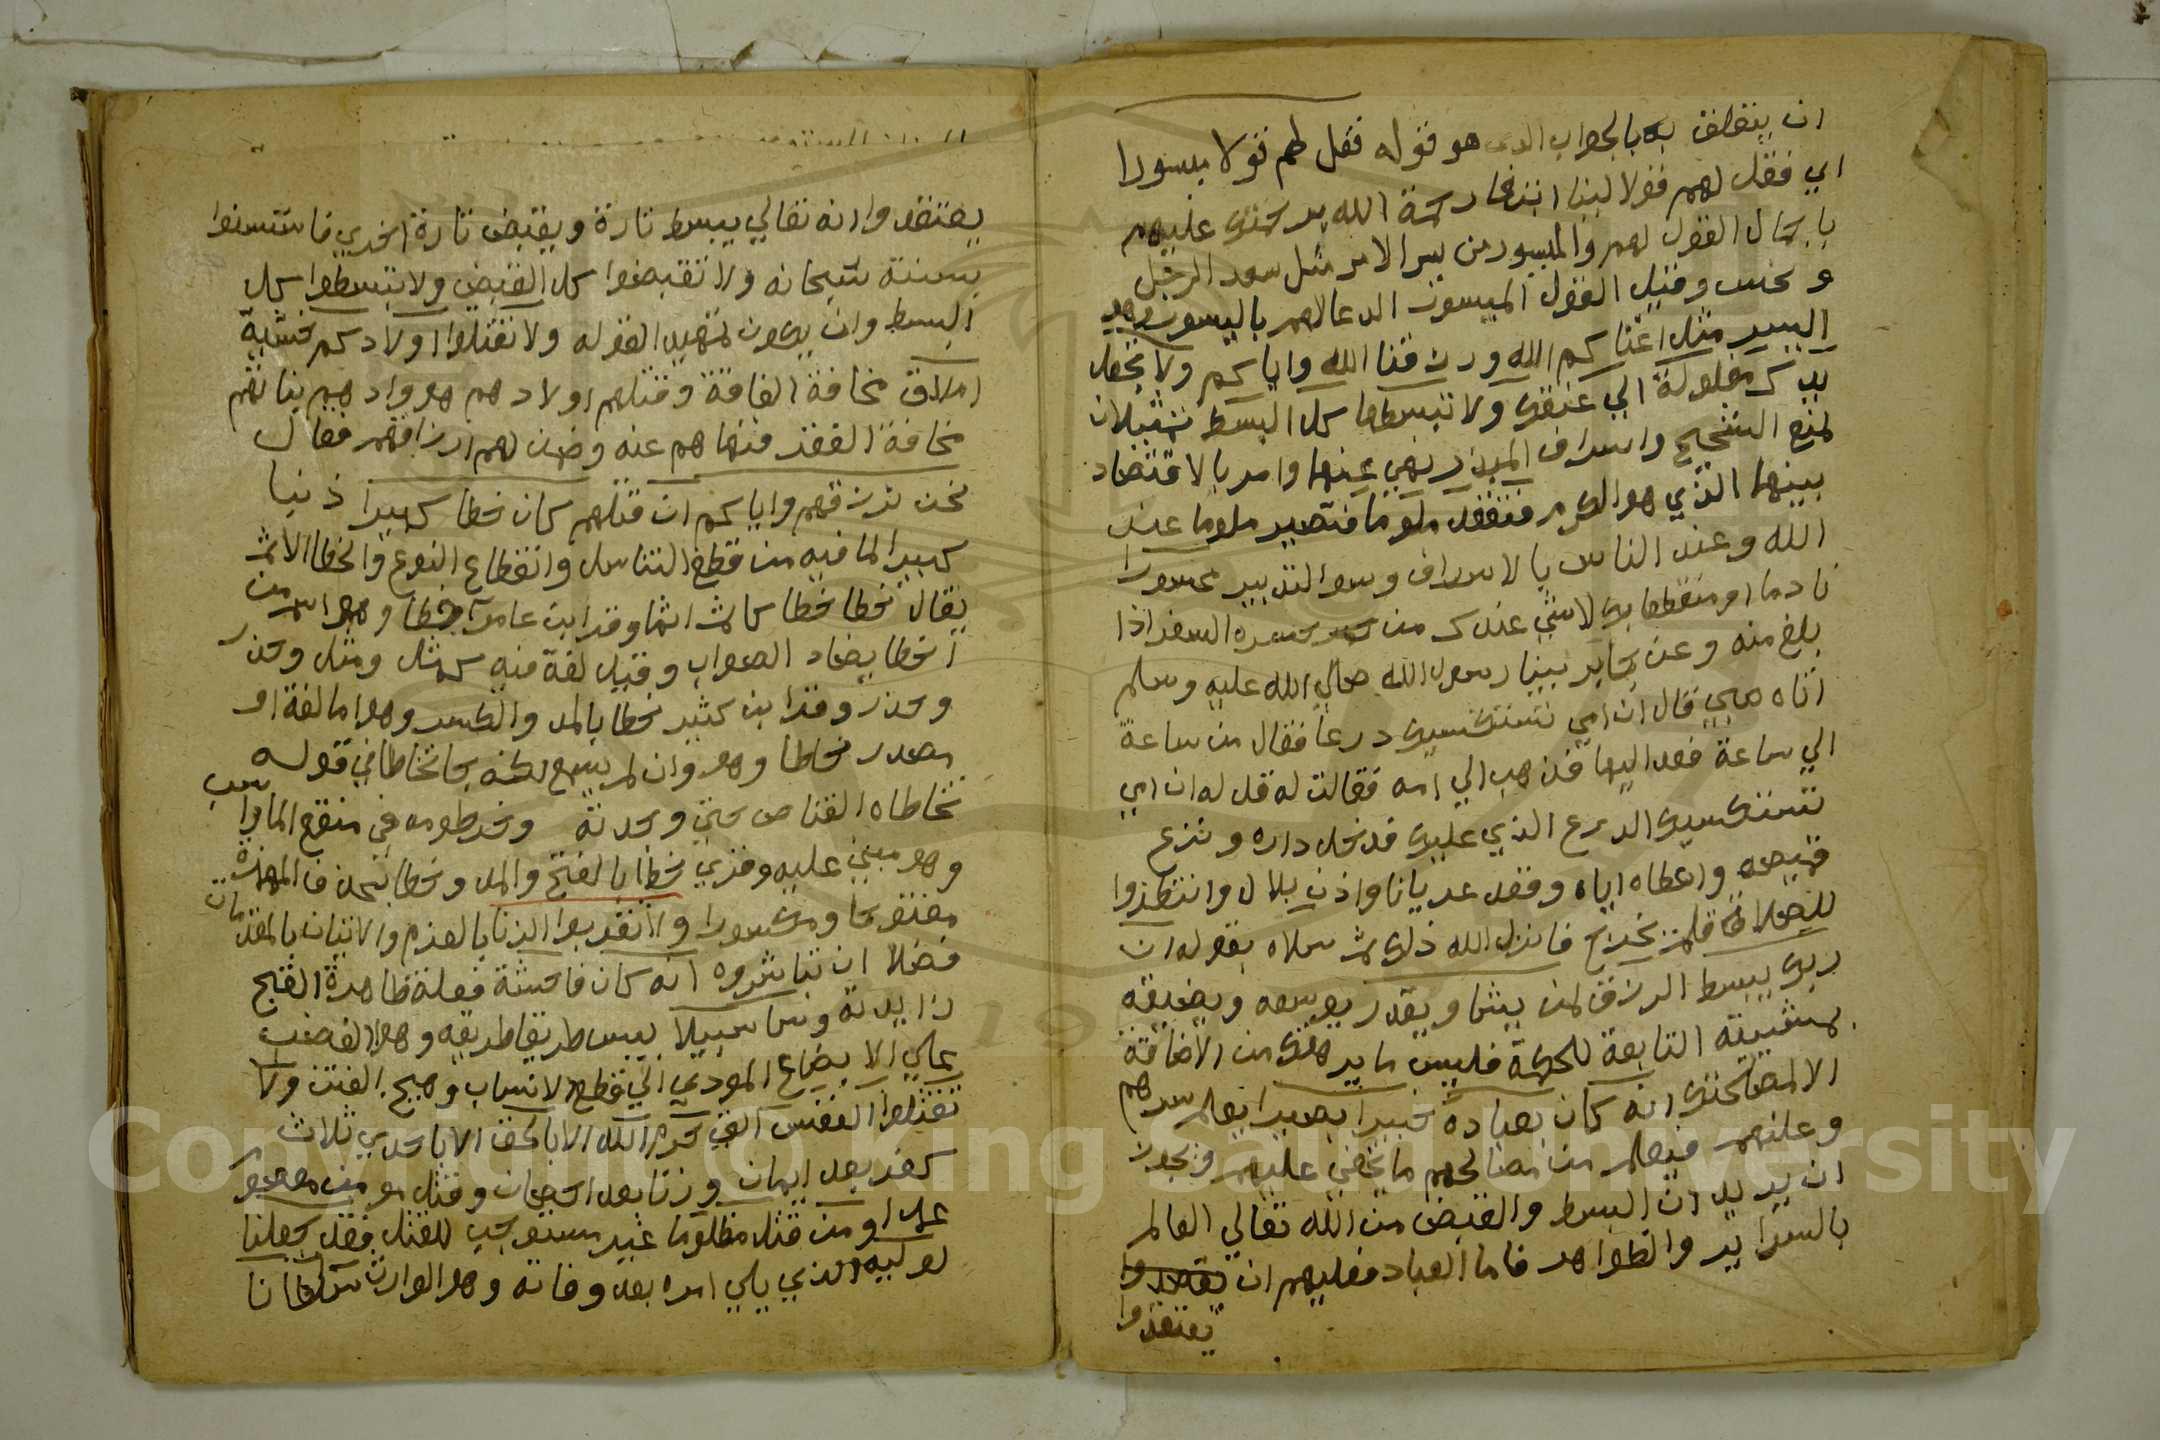 ان يتعلق به بالجواب الدى هو قوله فقل لهم قولا ميسورا
اي فقل لهم قولا لينا ابتغا رحمة الله برحمتك عليهم
باجمال القول لهم والميسور من يسر الامر مثل سعد الرجل
و نحس وقيل القول الميسور الدعا لهم بالميسور وهو
اليسر مثل اغناكم الله ورزقنا الله واياكم ولا تجعل
يدك مغلولة الي عنقك ولا تبسطها كل البسط تمثيلان
لمنع الشحيح واسراف المبذر نهي عنهما وامر بالاقتصاد
بينهما الذي هو الكرم فتقعد ملوما فتصير ملوما عند
الله وعند الناس بالاسراف وسو التدبير محسورا
نادما او منقطعا بك لا شي عندك من حسره السفر اذا
بلغ منه وعن جابر بينا رسول الله صلي الله عليه وسلم
اتاه صبي قال ان امي تستكسيك درعا فقال من ساعة
الي ساعة فعد الينا فذهب الي امه فقالت له قل له ان امي
تستكسيك الدرع الذي عليك فدخل داره ونزع
قميصه واعطاه اياه وقعد عريانا واذن بلال وانتظروا
للصلاة فلم يخرج فانزل الله ذلك ثم سلاه بقوله ان
ربك يبسط الرزق لمن يشا ويقدر يوسعه ويضيقه
بمشيته التابعة للحكمة فليس ما يرهقك من الاضافة
الا لمصلحتك انه كان بعباده خبيرا بصيرا يعلم سرهم
وعلنهم فيعلم من مصالحهم ما يخفي عليهم ويجوز
ان يريد ان البسط والقبض من الله تعالي العالم
بالسراير والظواهر فاما العباد فعليهم ان يقتصدوا
يعتقدوا
يعتقدوا انه تعالي يبسط تارة ويقبض تارة اخري فاستسنوا
بسنته سبحانه ولا تقبضوا كل القبض ولا تبسطوا كل
البسط وان يكون تمهيد القوله ولا تقتلوا اولادكم خشية
املاق مخافة الفاقة وقتلهم اولادهم هو وادهم بناتهم
مخافة الفقر فنهاهم عنه وضمن لهم ارزاقهم فقال
نحن نرزقهم واياكم ان قتلهم كان خطا كبيرا ذنبا
كبيرا لما فيه من قطع التناسل وانقطاع النوع والخطا الاثم
يقال خطا خطا كاثم اثما وقرا ابن عامر خطا وهو اسم من
اخطا يضاد الصواب وقيل لغة فيه كمثل ومثل وحذر
وحذر وقرا بن كثير خطا بالمد والكسر وهو اما لغة او
مصدر خاطا وهو وان لم يسمع لكنه جا تخاطا في قوله
تخاطاه القناص حتي وجدته وخرطومه في منقع الما راسب
وهو مبني عليه وقري خطا بالفتح والمد وخطا بحذف الهمزة
مفتوحا ومكسورا ولا تقربوا الزنا بالعزم والاتيان بالمقدمات
فضلا ان تباشروه انه كان فاحشة فعلة ظاهرة القبح
زايدته وسا سبيلا بيس طريقا طريقه وهو الغصب
علي الابضاع المودي الي قطع الانساب وهيج الفتن ولا
تقتلوا النفس التي حرم الله الا بالحق الا باحدي ثلاث
كفر بعد ايمان وزنا بعد احصان وقتل مومن معصوم
عمدا ومن قتل مظلوما غير مستوجب للقتل فقد جعلنا
لوليه الذي يلي امره بعد وفاته وهو الوارث سلطانا
Copyright © King Saud University